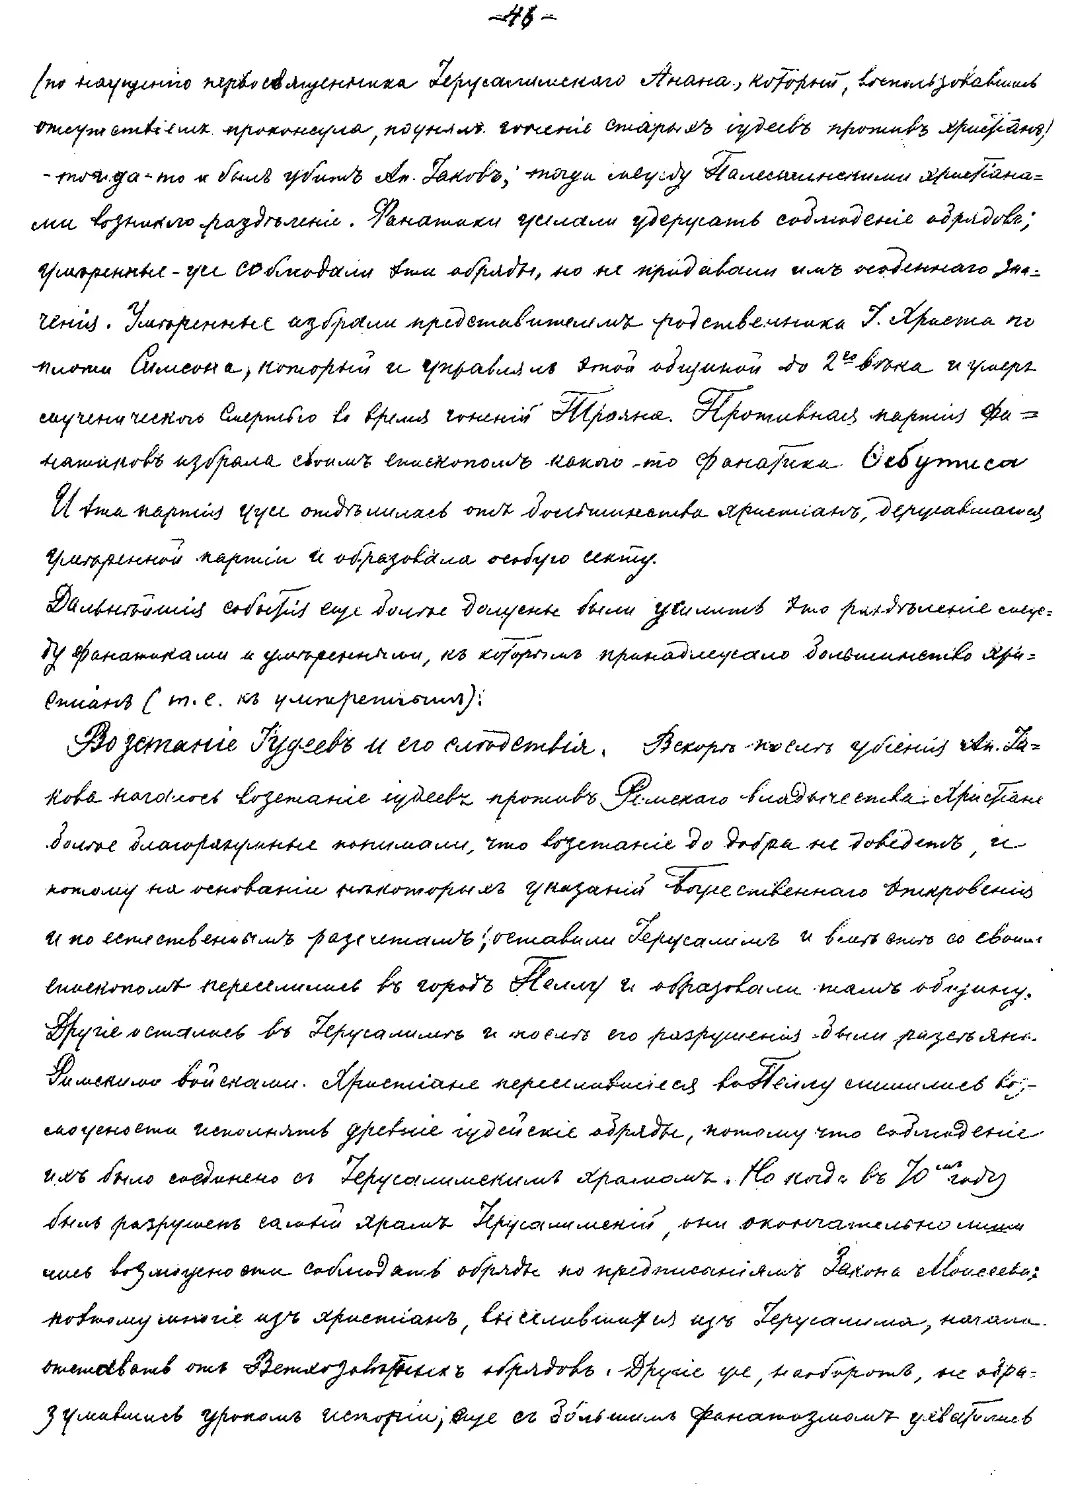 -46-
(по наущенію первосвященника Іерусалимскаго Анана, который, воспользовавшись
отсутствіемъ проконсула, поднялъ гоненіе старыхъ іудеевъ противъ христіанъ)
-тогда-то и былъ убитъ Ап. Іаковъ; тогда между Палестинскими христіана=
ми возникло раздѣленіе. Фанатики желали удержать соблюденіе обрядовъ;
умѣренные-же соблюдали эти обряды, но не придавали имъ особеннаго зна=
ченія. Умѣренные избрали представителемъ родственника І. Христа по
плоти Симеона, который и управлялъ этой общиной до 2го вѣка и умеръ
мученическою смертью во время гоненій Трояна. Противная партія фа=
натиковъ избрала своимъ епископомъ какого-то фанатика Ѳебутиса
И эта партія уже отдѣлилась отъ большинства христіанъ, державшагося
умѣренной партіи и образовала особую секту.
Дальнѣйшія событія еще болѣе должны были усилить это раздѣленіе меж=
ду фанатиками и умѣренными, къ которымъ принадлежало большинство хри=
стіанъ (т.е. къ умѣреннымъ):
Возстаніе Іудеевъ и его слѣдствія. Вскорѣ послѣ убіенія Ап. Іа=
кова началось возстаніе іудеевъ противъ Римскаго владычества. Христіане
болѣе благоразумные понимали, что возстаніе до добра не доведетъ, и
потому на основаніи нѣкоторыхъ указаній Божественнаго Откровенія
и по естественнымъ разсчетамъ, оставили Іерусалимъ и вмѣстѣ со своимъ
епископомъ переселились въ городъ Пеллу и образовали тамъ общину.
Другіе остались въ Іерусалимѣ и послѣ его разрушенія были разсѣяны
Римскими войсками. Христіане переселившіеся въ Пеллу лишились воз-
можности исполнять древніе іудейскіе обряды, потому что соблюденіе
ихъ было соединено съ Іерусалимскимъ храмомъ. Но когда въ 70мъ году
былъ разрушенъ самый храмъ Іерусалимскій, они окончательно лиши
лись возможности соблюдать обряды по предписаніямъ Закона Моисеева;
поэтому многіе изъ христіанъ, выселившихся изъ Іерусалима, начали
отставать отъ Ветхозавѣтныхъ обрядовъ. Другіе же, наоборотъ, не обра=
зумившись урокомъ исторіи, еще съ бо́льшимъ фанатизмомъ ухватились